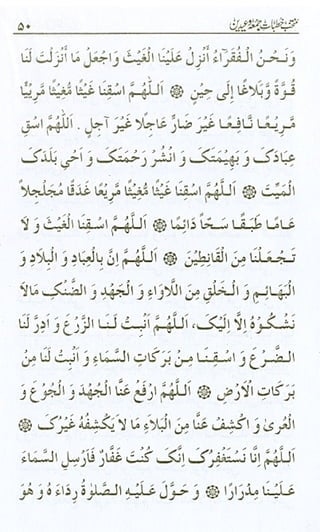 منتخب خطبات جمعہ و عیدین ۵۰
وَنَحْنُ الْفُقَرَآءُ اَنْزِلْ عَلَيْنَا الْغَيْثَ وَاجْعَلْ مَا اَنْزَلْتَ لَنَا
قُوَّةً وَّبَلَاغًا اِلٰى حِيْنٍ ۞ اَللّٰهُمَّ اسْقِنَا غَيْثًا مُّغِيْثًا مَّرِيْئًا
مَّرِيْعًا نَّافِعًا غَيْرَ ضَارٍّ عَاجِلًا غَيْرَ آجِلٍ . اَللّٰهُمَّ اسْقِ
عِبَادَكَ وَ بَهِيْمَتَكَ وَ انْشُرْ رَحْمَتَكَ وَ اَحْيِ بَلَدَكَ
الْمَيِّتَ ۞ اَللّٰهُمَّ اسْقِنَا غَيْثًا مُّغِيْثًا مَّرِيْعًا غَدَقًا مُّجَلْجِلًا
عَامًا طَبَقًا سَحّاً دَائِمًا ۞ اَللّٰهُمَّ اسْقِنَا الْغَيْثَ وَ لَا
تَجْعَلْنَا مِنَ الْقَانِطِيْنَ ۞ اَللّٰهُمَّ اِنَّ بِالْعِبَادِ وَ الْبِلَادِ وَ
الْبَهَائِمِ وَ الْخَلْقِ مِنَ اللَّاوَاءِ وَ الْجَهْدِ وَ الضَّنْكِ مَالَا
نَشْكُوْهُ اِلَّا اِلَيْكَ، اَللّٰهُمَّ اَنْبِتْ لَنَا الزَّرْعَ وَ اَدِرَّ لَنَا
الضَّرْعَ وَ اسْقِنَا مِنْ بَرَكَاتِ السَّمَاءِ وَ اَنْبِتْ لَنَا مِنْ
بَرَكَاتِ الْاَرْضِ ۞ اَللّٰهُمَّ ارْفَعْ عَنَّا الْجُهْدَ وَ الْجُوْعَ وَ
الْعُرٰىَ وَ اكْشِفْ عَنَّا مِنَ الْبَلَاءِ مَا لَا يَكْشِفُهٗ غَيْرُكَ ۞
اَللّٰهُمَّ اِنَّا نَسْتَغْفِرُكَ اِنَّكَ كُنْتَ غَفَّارًا فَاَرْسِلِ السَّمَاءَ
عَلَيْنَا مِدْرَارًا ۞ وَ حَوَّلَ عَلَيْهِ الصَّلٰوةُ رِدَاءَهٗ وَ هُوَ